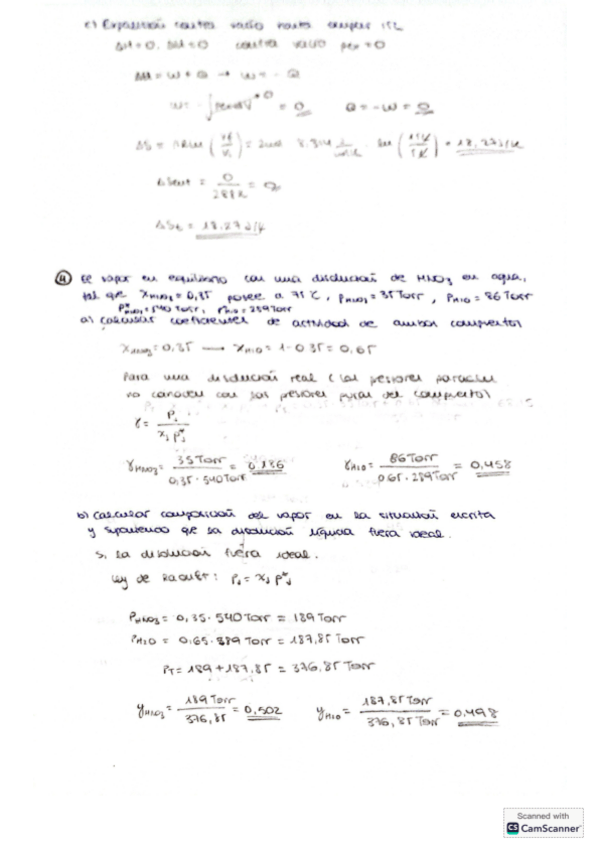 c) Expansión contra vacío hasta ocupar 15L
ΔH = 0, ΔU = 0 contra vacío pex = 0
ΔU = W + Q → W = - Q
W = - ∫pexdV = 0 Q = -W = 0
ΔS = nRln (Vf/Vi) = 2mol · 8,314 · ln (15L/5L) = 18,27J/K
ΔSent = 0/288K = 0
ΔSt = 18.27J/K
④ El vapor en equilibrio con una disolución de HNO3 en agua,
tal que XHNO3 = 0,35 posee a 75°C, PHNO3 = 35Torr, PH2O = 86Torr
P*HNO3 = 540 Torr, P*H2O = 289Torr
a) Calcular coeficientes de actividad de ambos compuestos
XHNO3 = 0,35 → XH2O = 1 - 0.35 = 0,65
Para una disolución real (las presiones parciales
no coinciden con las presiones puras del compuesto)
γ = Pj / xj Pj*
γHNO3 = 35Torr / 0,35 · 540Torr = 0.186 γH2O = 86Torr / 0.65 · 289Torr = 0,458
b) Calcular composición del vapor en la situación escrita
y suponiendo que la disolución líquida fuera ideal.
Si la disolución fuera ideal.
Ley de Raoult: Pj = xj Pj*
PHNO3 = 0,35 · 540Torr = 189Torr
PH2O = 0,65 · 289Torr = 187,85 Torr
PT = 189 + 187,85 = 376,85Torr
yHNO3 = 189Torr / 376,85 = 0,502 yH2O = 187,85Torr / 376,85Torr = 0,498
Scanned with
CS CamScanner